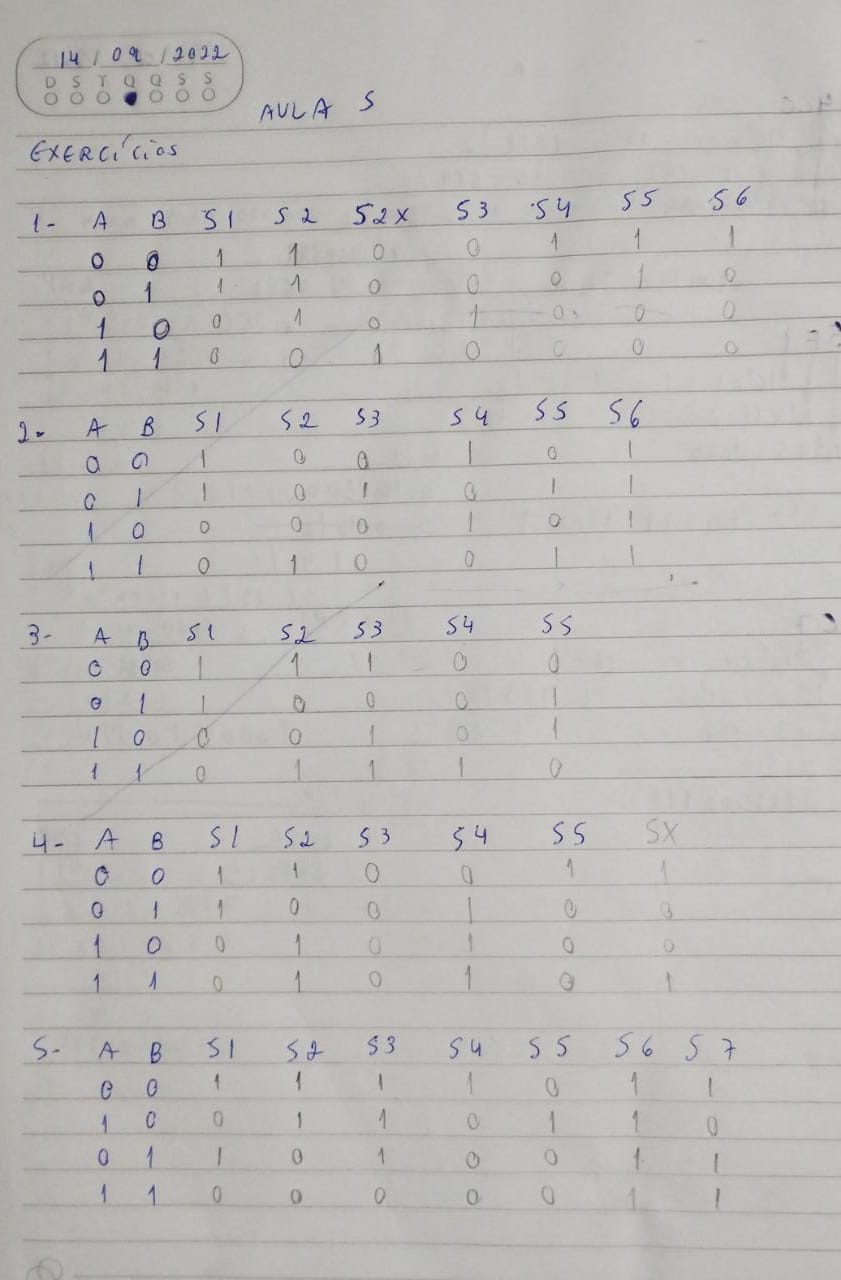 14 / 09 / 2022
D S T Q Q S S
AULA 5
EXERCÍCIOS
1- A B S1 S2 S2X S3 S4 S5 S6
0 0 1 1 0 0 1 1 1
0 1 1 1 0 0 0 1 0
1 0 0 1 0 1 0 0 0
1 1 0 0 1 0 0 0 0
2- A B S1 S2 S3 S4 S5 S6
0 0 1 0 0 1 0 1
0 1 1 0 1 0 1 1
1 0 0 0 0 1 0 1
1 1 0 1 0 0 1 1
3- A B S1 S2 S3 S4 S5
0 0 1 1 1 0 0
0 1 1 0 0 0 1
1 0 0 0 1 0 1
1 1 0 1 1 1 0
4- A B S1 S2 S3 S4 S5 SX
0 0 1 1 0 0 1 1
0 1 1 0 0 1 0 0
1 0 0 1 0 1 0 0
1 1 0 1 0 1 0 1
5- A B S1 S2 S3 S4 S5 S6 S7
0 0 1 1 1 1 0 1 1
1 0 0 1 1 0 1 1 0
0 1 1 0 1 0 0 1 1
1 1 0 0 0 0 0 1 1